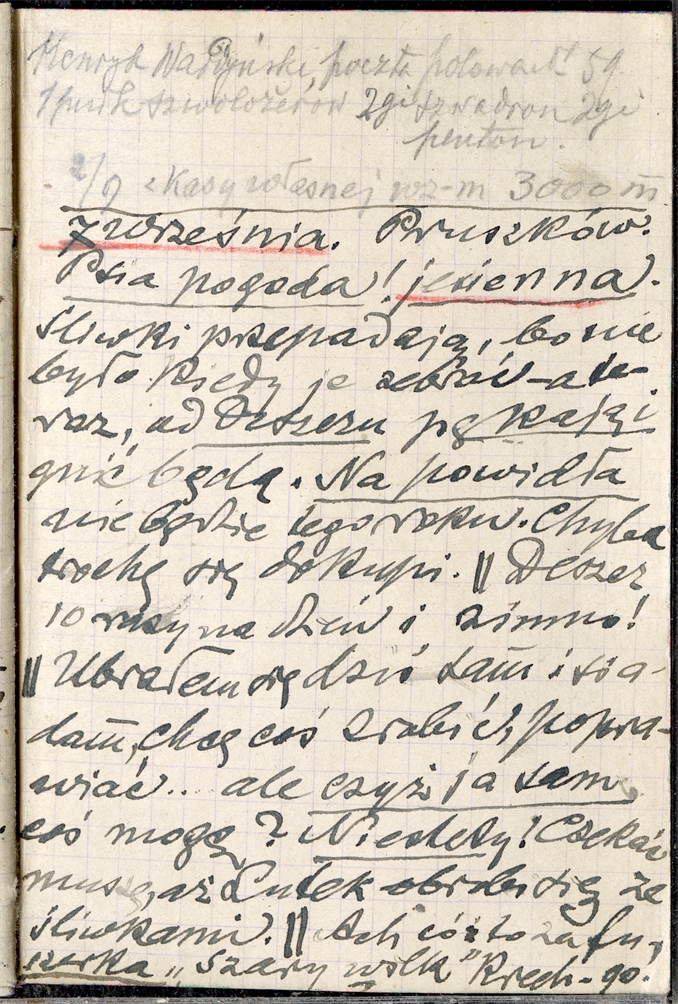 Henryk poczta polowa № 59.
1 pułk szwoleżerów 2gi szwadron 2gi
pluton.
2/9 z Kasy własnej wz-m 3000 m
7 września. Pruszków.
Psia pogoda! jesienna.
Śliwki przepadają, bo nie
było kiedy je zebrać – a te-
raz, od deszczu pękają i
gnić będą. Na powidła
nie będzie tego roku. Chyba
trochę się dokupi. || Deszcz
10 razy na dzień i zimno!
|| Ubrałem się dziś sam i sia-
dam, chcę coś zrobić, popra-
wiać.. ale czyż ja sam
coś mogę? Niestety! Czekać
muszę, aż Lutek obrobi się ze
śliwkami. || Ach cóż to za fu-
szerka „Szary wilk” Krech-go.